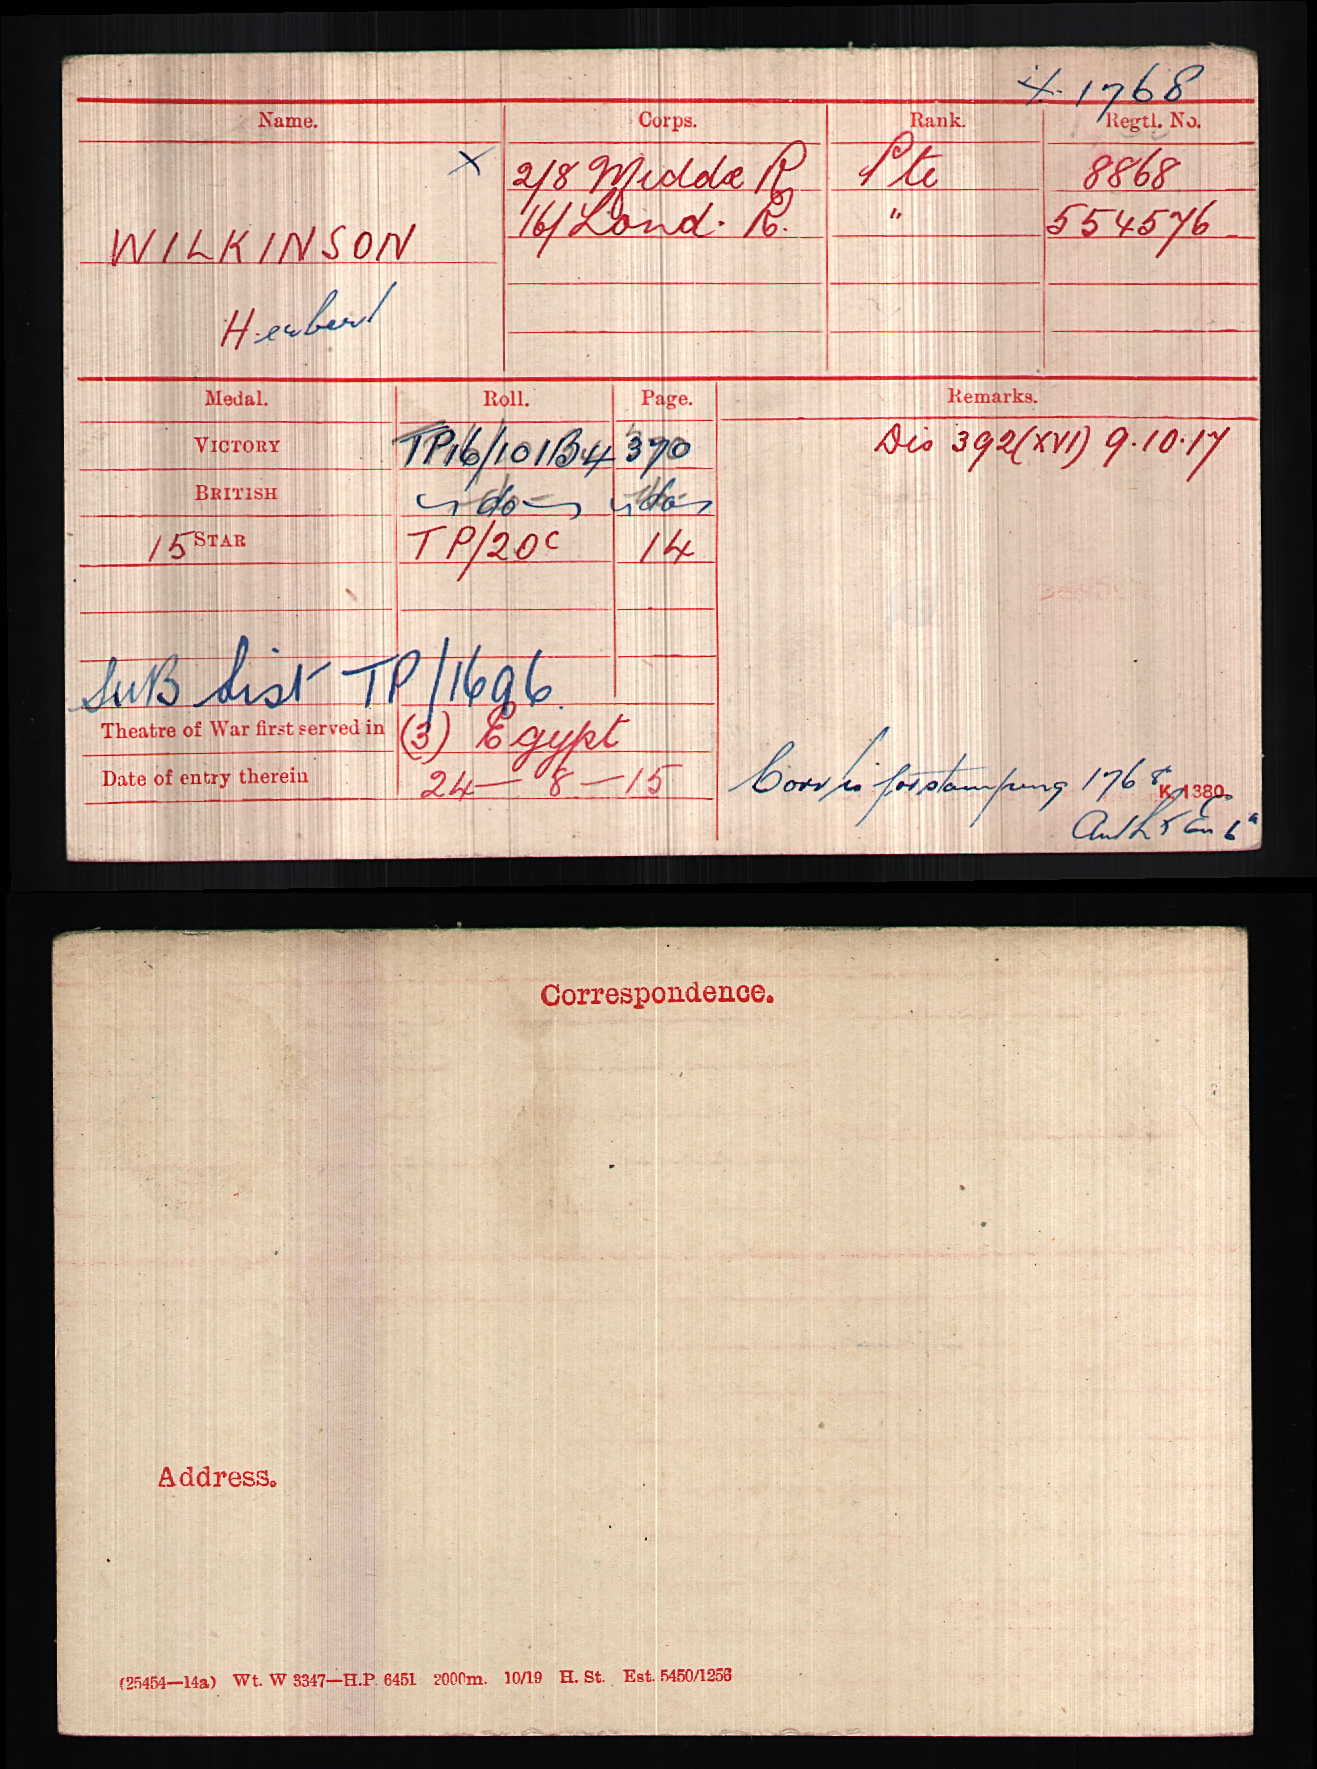 X 1768
Name. Corps. Rank. Regtl. No.
X 2/8 Middx R Pte 8868
WILKINSON 16/Lond. R. " 554576
Herbert
Medal. Roll. Page. Remarks.
VICTORY TP16/101B4 370 Dis 392(XVI) 9.10.17
BRITISH do do
15 STAR TP/20C 14
SuB List TP/1696
Theatre of War first served in (3) Egypt
Date of entry therein 24-8-15
for stamping 1768 K 1380
Correspondence.
Address.
(25454—14a) Wt. W 3347—H.P. 6451 2000m. 10/19 H. St. Est. 5450/1256